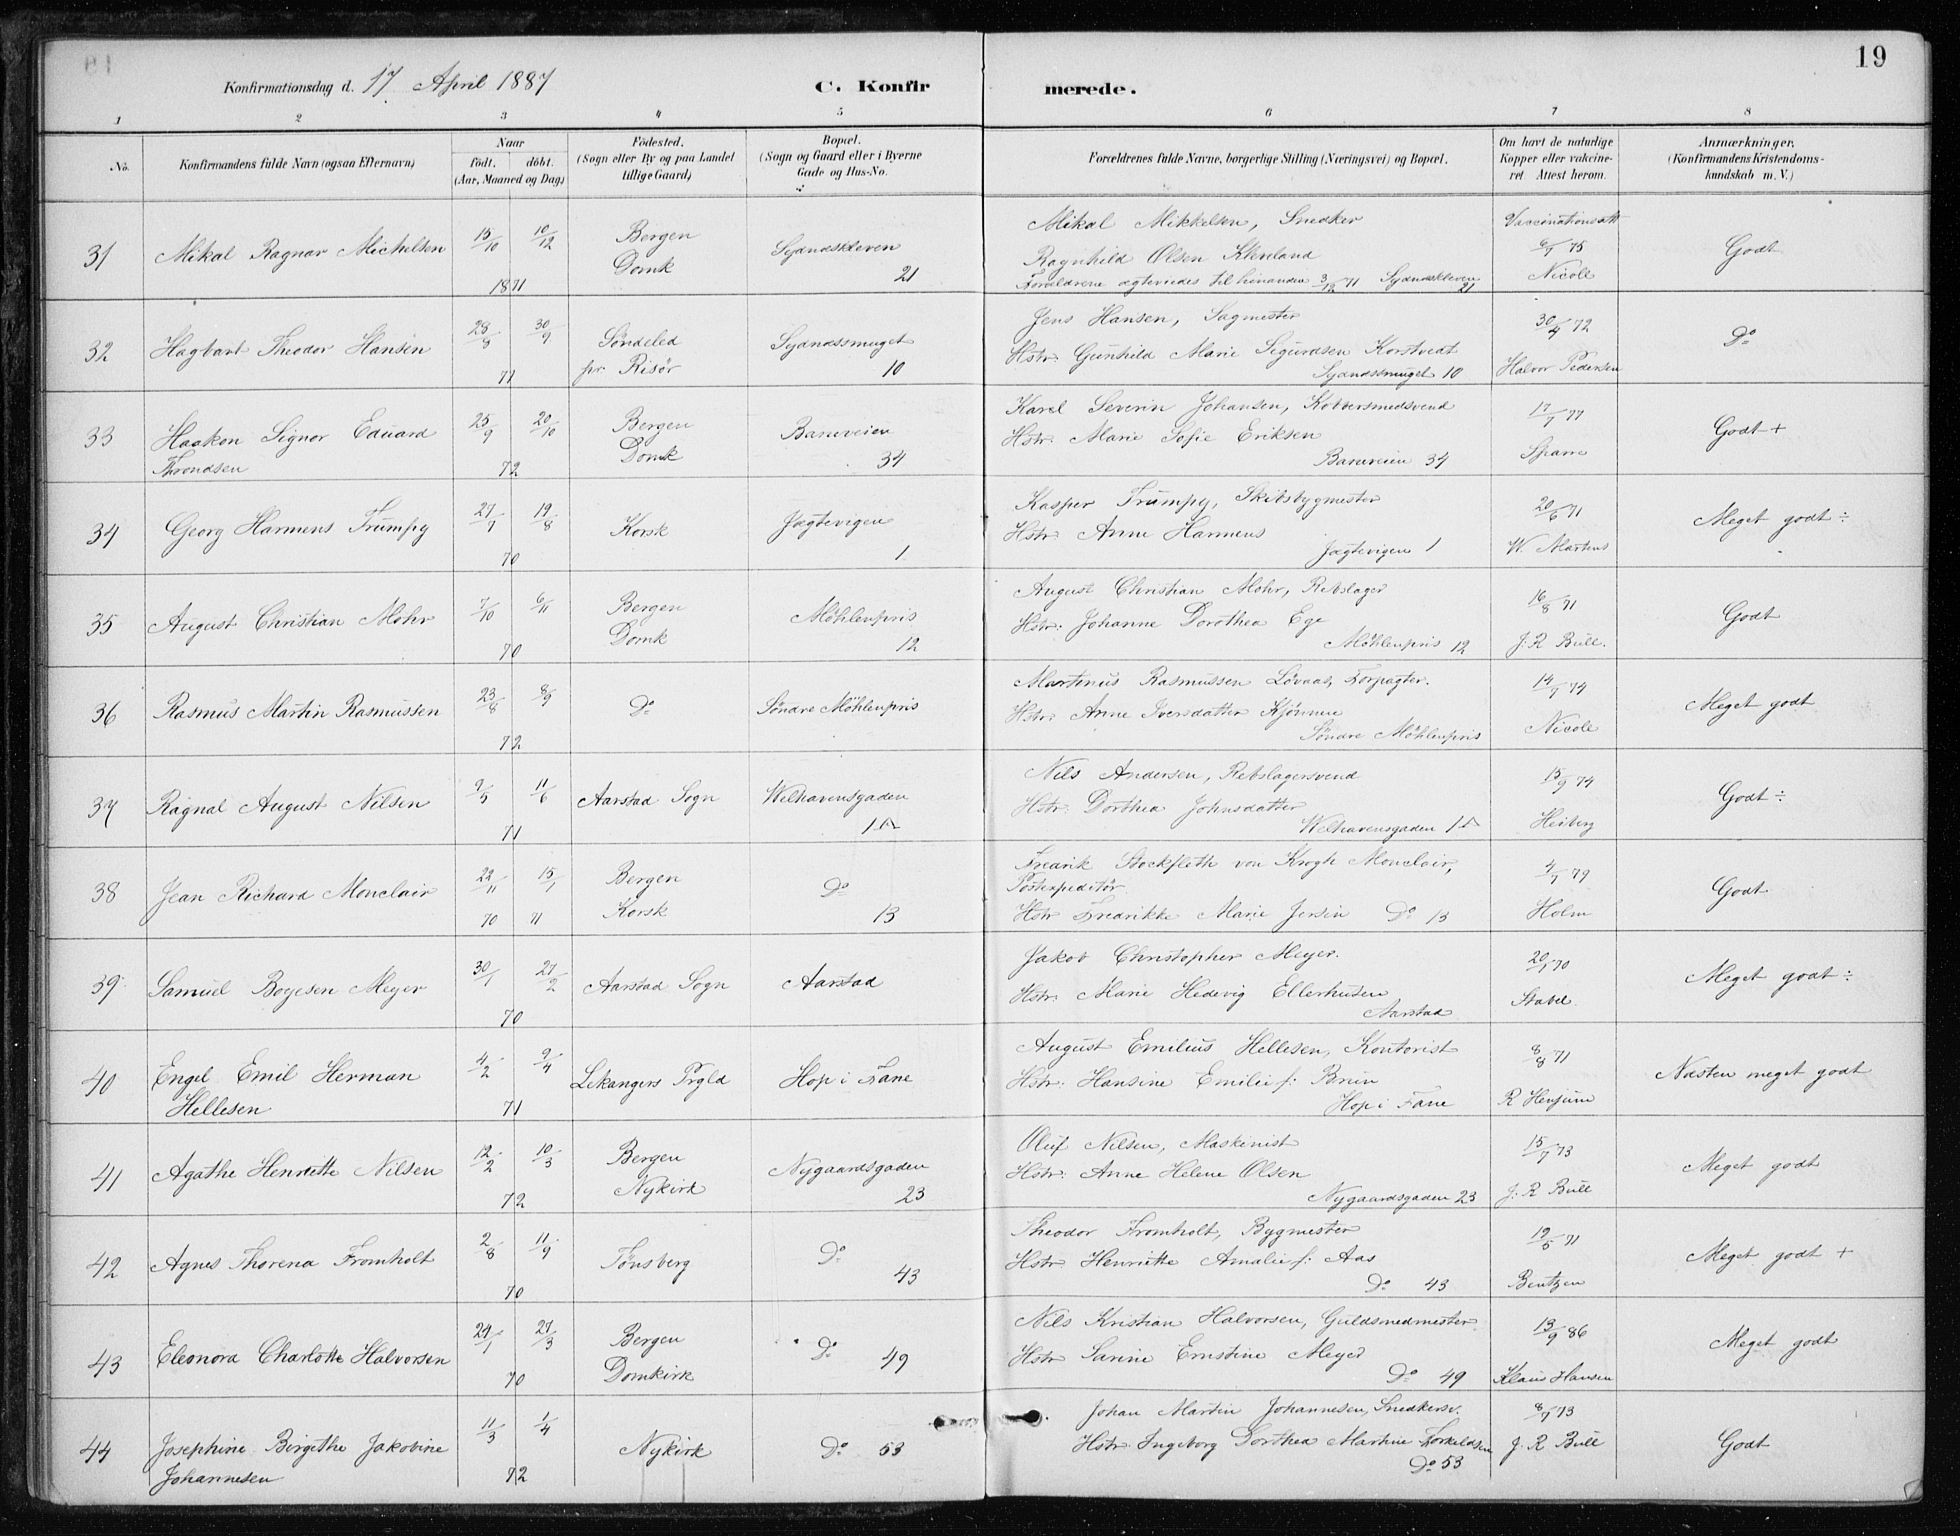 19
Konfirmationsdag d. 17 April 1887 C. Konfirmerede.
1 2 3 4 5 6 7 8
No. Konfirmandens fulde Navn (ogsaa Efternavn) Naar födt. döbt. (Aar, Maaned og Dag) Födested. (Sogn eller By og paa Landet tillige Gaard) Bopæl. (Sogn og Gaard eller i Byerne Gade og Hus-No. Forældrenes fulde Navne, borgerlige Stilling (Næringsvei) og Bopæl. Om havt de naturlige Kopper eller vakcineret. Attest herom. Anmærkninger. (Konfirmandens Kristendomskundskab m. V.)
31 Mikal Ragnar Michelsen 15/10 10/12 1871 Bergen Domk Sydnæskleven 21
Mikal Mikkelsen, Snedker
Ragnhild Olsen
Forældrene ægteviedes til hinanden 3/12 71 Sydnæskleven 21
Vaccinationsatt 6/7 75 Nicole
Godt
32 Hagbart Theodor Hansen 28/8 30/9 71 Söndeled pr Risör Sydnæssmuget 10
Jens Hansen, Sagmester
Hstr. Gunhild Marie Sigurdsen Korstvedt
Sydnæssmuget 10
30/4 72 Halvor Pedersen
Do
33 Haakon Signor Eduard Throndsen 25/9 20/10 72 Bergen Domk Baneveien 34
Karel Severin Johansen, Kobbersmedsvend
Hstr. Marie Sofie Eriksen
Baneveien 34
17/7 77 Sparre
Godt +
34 Georg Harmens Trumpy 27/7 19/8 70 Korsk Jægtevigen 1
Kasper Trumpy, Skibsbygmester
Hstr. Anne Harmens
Jægtevigen 1
20/6 71 W. Martens
Meget godt ÷
35 August Christian Mohr 7/10 6/11 70 Bergen Domk Möhlenpris 12
August Christian Mohr, Rebslager
Hstr: Johanne Dorothea Ege
Möhlenpris 12
16/8 71 J. R Bull.
Godt
36 Rasmus Martin Rasmussen 23/8 8/9 72 Do Söndre Möhlenpris
Martinus Rasmussen Lövaas, Forpagter.
Hstr. Anne Iversdatter
Söndre Möhlenpris
14/7 74 Nicole
Meget godt
37 Ragnal August Nilsen 9/5 11/6 71 Aarstad Sogn Welhavensgaden 1A
Nils Andersen, Rebslagersvend
Hstr: Dorthea Johnsdatter
Welhavensgaden 1A
15/9 74 Heiberg
Godt ÷
38 Jean Richard Monclair 22/11 15/1 70 71 Bergen Korsk Do 13
Fredrik Stockfleth von Krogh Monclair,
Postexpeditör
Hstr Fredrikke Marie Jersin Do 13
4/7 79 Holm
Godt
39 Samuel Boyesen Meyer 30/1 27/2 70 Aarstad Sogn Aarstad
Jakob Christopher Meyer.
Hstr. Marie Hedevig Ellerhusen
Aarstad
20/1 70 Stabel
Meget godt ÷
40 Engel Emil Herman Hellesen 4/2 9/4 71 Lekangers Prgld Hop i Fane
August Emilius Hellesen, Kontorist
Hstr: Hansine Emilie f: Bruun
Hop i Fane
8/8 71 R Henjum
Næsten meget godt
41 Agathe Henriette Nilsen 12/2 10/3 72 Bergen Nykirk Nygaardsgaden 23
Oluf Nilsen, Maskenist
Hstr: Anne Helene Olsen
Nygaardsgaden 23
15/7 73 J. R Bull
Meget godt
42 Agnes Thorena Fromholt 2/8 11/9 70 Tönsberg Do 43
Theodor Fromholt, Bygmester
Hstr Henriette Amalie f: Aas
Do 43
19/5 71 Bentzen
Meget godt +
43 Eleonora Charlotte Halvorsen 24/1 27/3 70 Bergen Domkirk Do 49
Nils Kristian Halvorsen, Guldsmedmester
Hstr Sarine Ernstine Meyer
Do 49
13/9 86 Klaus Hansen
Meget godt
44 Josephine Birgethe Jakobine Johannesen 11/3 1/4 72 Nykirk Do 53
Johan Martin Johannesen, Snedkersv.
Hstr. Ingeborg Dorthea Martine Torkeldsen
Do 53
8/7 73 J. R Bull
Godt